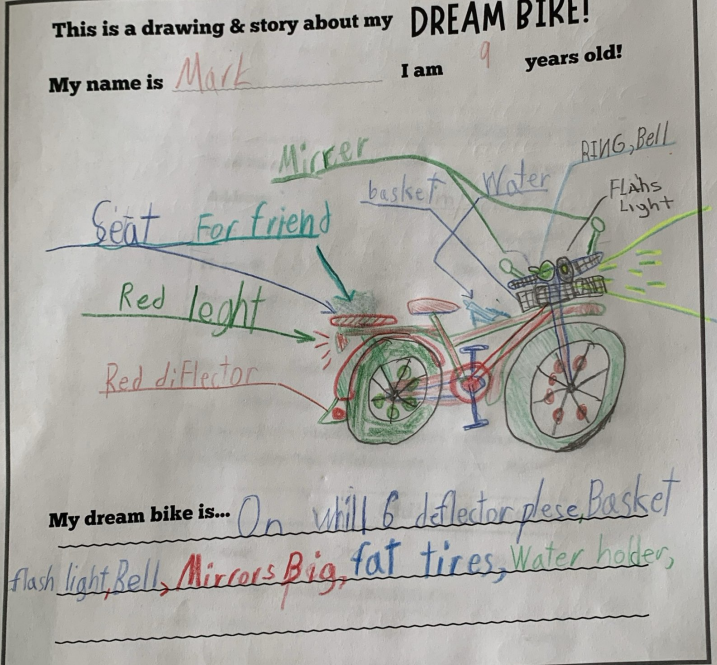 This is a drawing & story about my DREAM BIKE!
My name is Mark I am 9 years old!
Mirrer
RING, Bell
basket
Water
FLAhs
Light
Seat For friend
Red leght
Red diflector
My dream bike is... On whill 6 deflector plese, Basket
flash light, Bell, Mirrors Big, fat tires, Water holder,